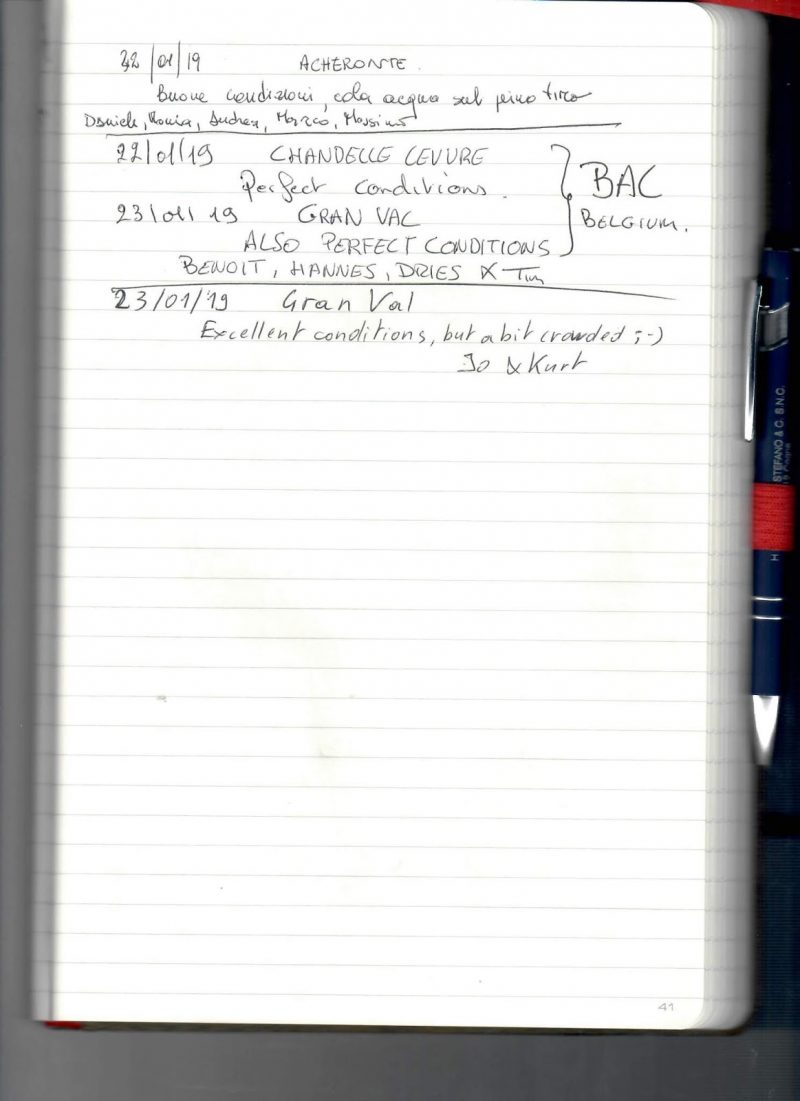 22/01/19 ACHERONTE.
Buone condizioni, cola acqua sul primo tiro
Daniele, Romia, Andrea, Marco, Massimo
22/01/19 CHANDELLE LEVURE
Perfect conditions.
BAC
BELGIUM.
23/01/19 GRAN VAL
ALSO PERFECT CONDITIONS
BENOIT, HANNES, DRIES & Tim
23/01/'19 Gran Val
Excellent conditions, but a bit crowded ;-)
Jo & Kurt
STEFANO & C. S.N.C.
41